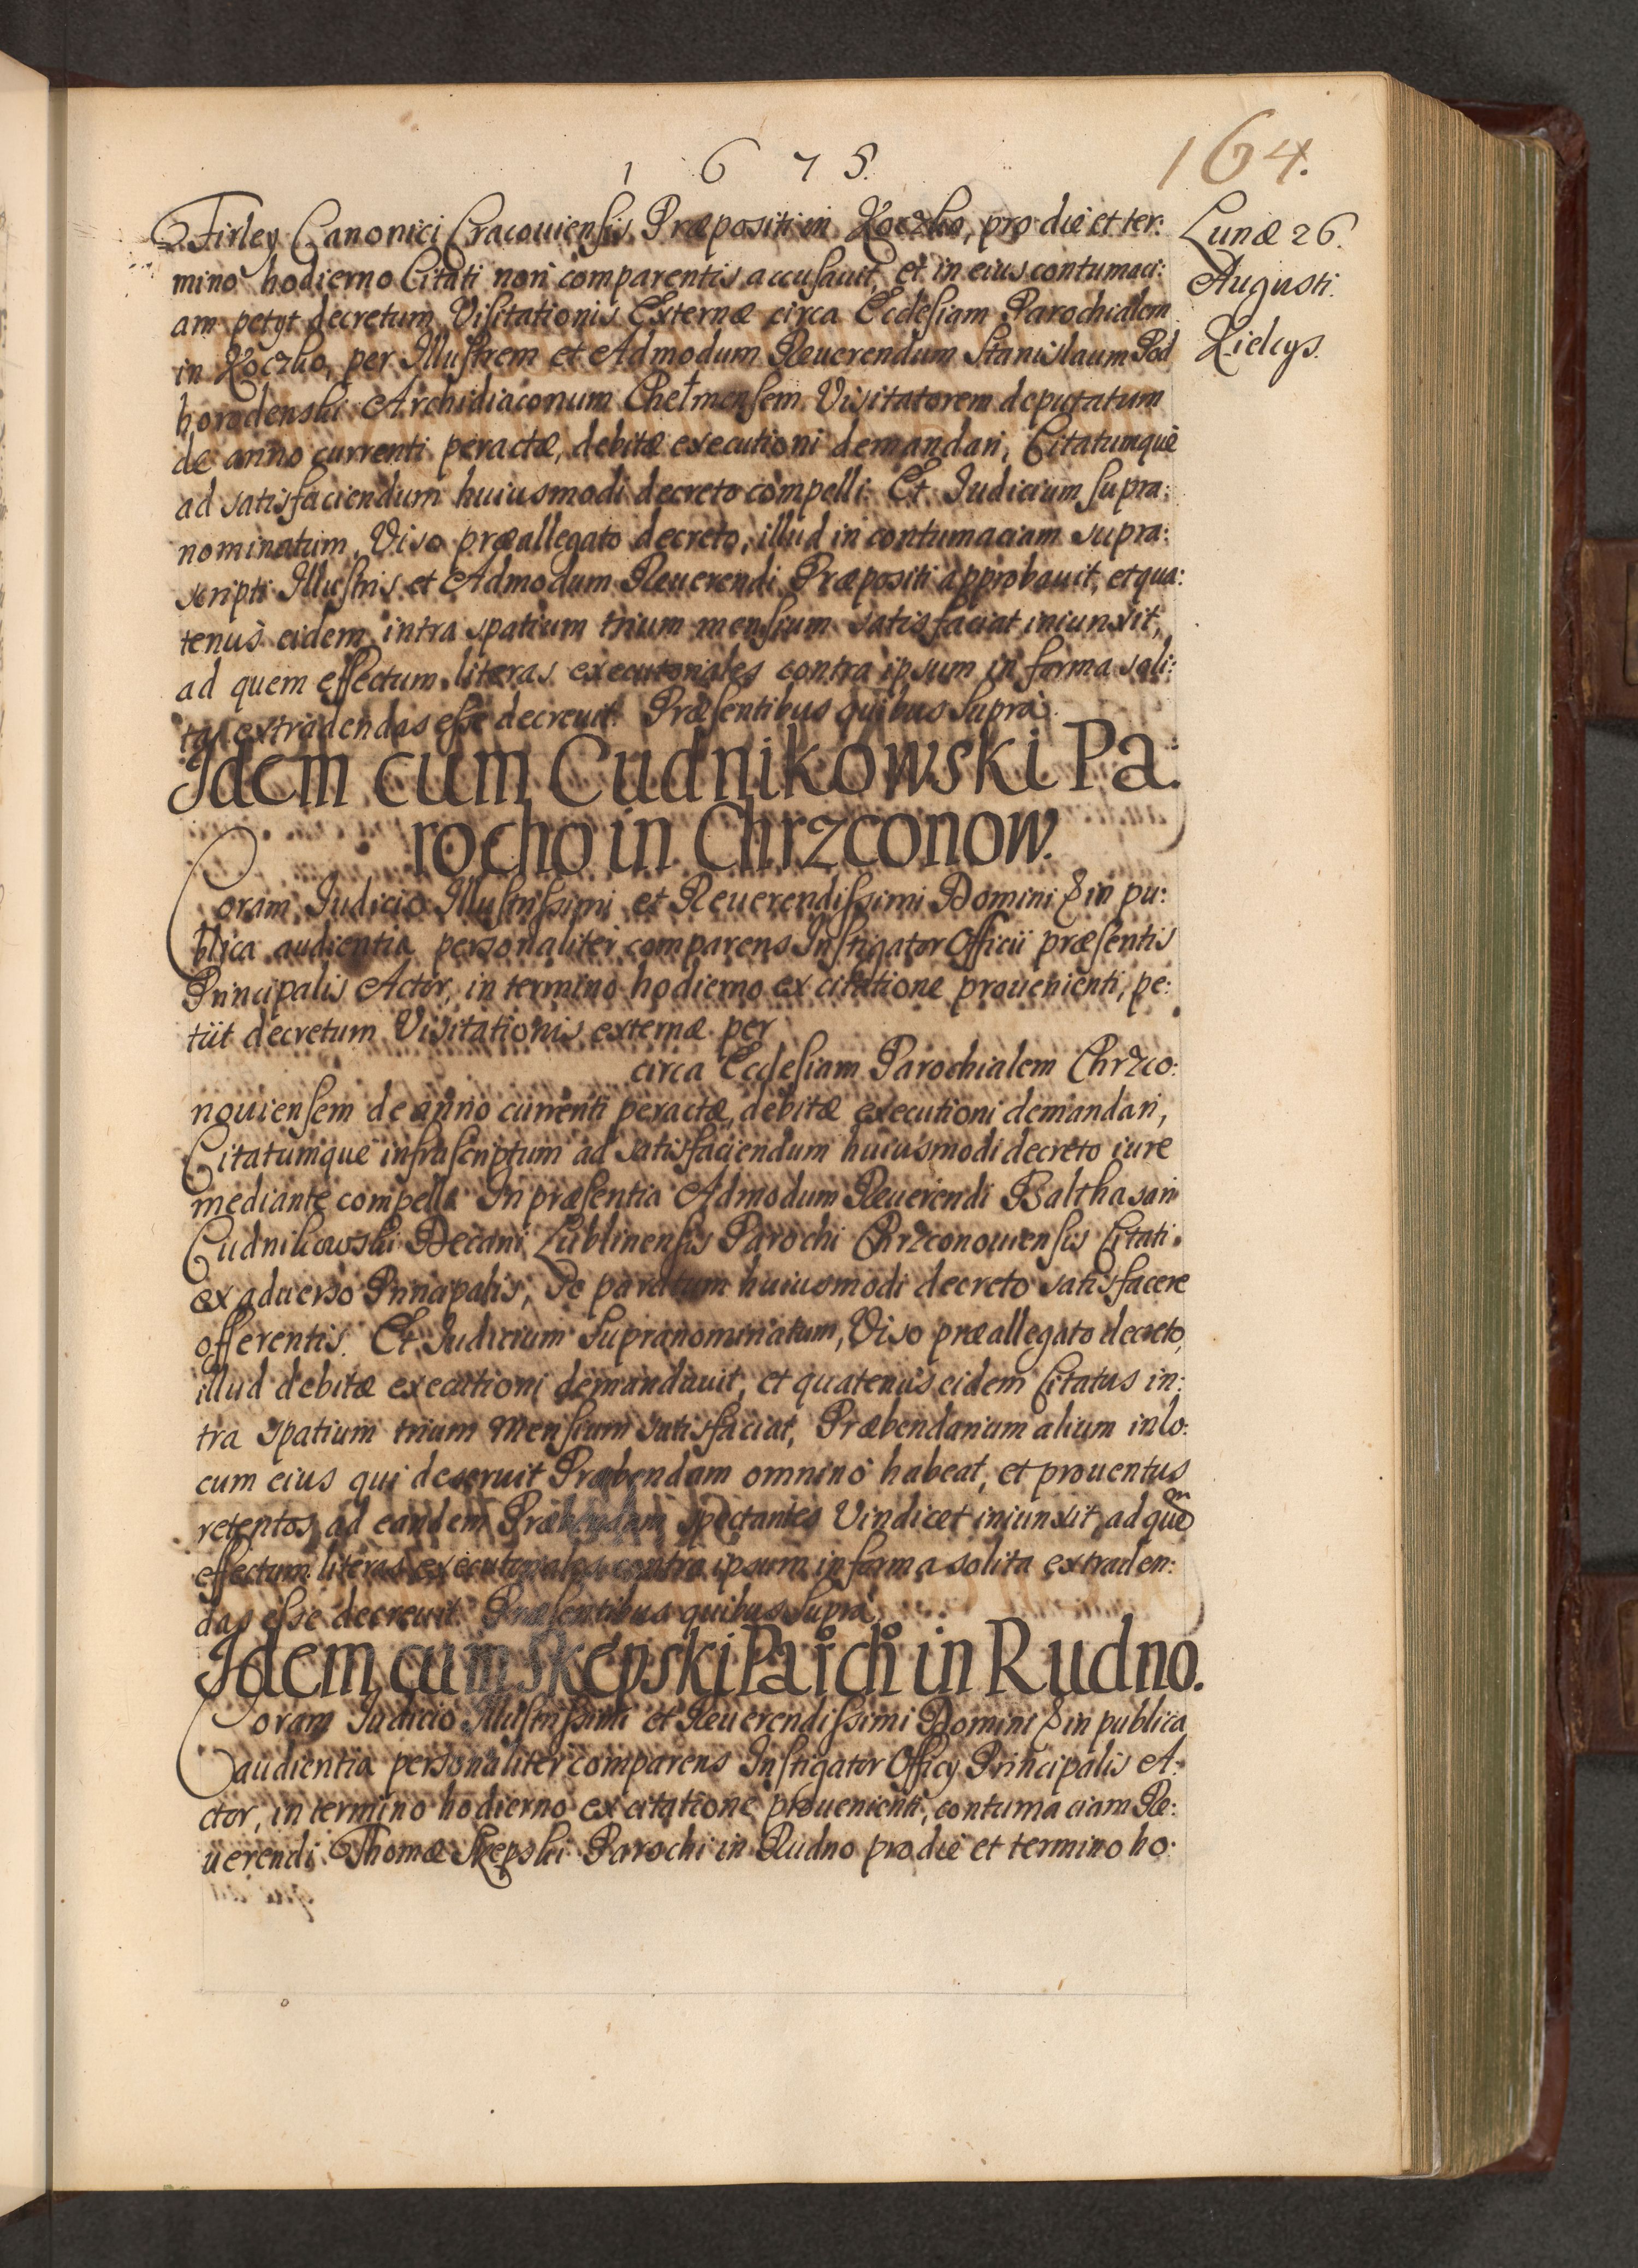 1675.
164.
Firley Canonici Cracouiensis, Præpositi in Koczko, pro die et ter:
mino hodierno Citati non comparentis accusauit, et in eius contumaci:
am petyt decretum Visitationis Externæ circa Ecclesiam Parochialem
in Koczko, per Illustrem et Admodum Reuerendum Stanislaum Pod
horodenski Archidiaconum Chełmensem Visitatorem deputatum
de anno currenti peractæ, debitæ executioni demandari, Citatumquè
ad satisfaciendum huiusmodi decreto compelli. Et Iudicium supra:
nominatum, Viso præallegato decreto, illud in contumaciam supra:
scripti Illustris et Admodum Reuerendi Præpositi approbauit, et qua:
tenus eidem intra spatium trium mensium satisfaciat iniunxit,
ad quem effectum literas executoriales contra ipsum in forma soli:
ta extradendas esse decreuit. Præsentibus quibus supra.
Lunæ 26.
Augusti.
Kielcys.
Idem cum Cudnikowski Pa:
rocho in Chrzconow.
Coram Iudicio Illustrissimi et Reuerendissimi Domini & in pu:
blica audientia personaliter comparens Instigator Officii præsentis
Principalis Actor, in termino hodierno ex citatione prouenienti, pe:
tiit decretum Visitationis externæ per
circa Ecclesiam Parochialem Chrzco:
nouiensem de anno currenti peractæ, debitæ executioni demandari,
Citatumque infrascriptum ad satisfaciendum huiusmodi decreto iure
mediante compelli. In præsentia Admodum Reuerendi Balthasari
Cudnikowski Decani Lublinensis Parochi Chrzconouiensis Citati
ex aduerso Principalis, se paratum huiusmodi decreto satisfacere
offerentis. Et Iudicium Supranominatum, Viso præallegato decreto,
illud debitæ executioni demandauit, et quatenus eidem Citatus in:
tra spatium trium Mensium satisfaciat, Præbendarium alium in lo:
cum eius qui deseruit Præbendam omnino habeat, et prouentus
retentos, ad eandem Præbendam spectantes Vindicet iniunxit, ad quem
effectum literas executoriales contra ipsum in forma solita extraden:
das esse decreuit. Præsentibus quibus supra.
Idem cum Skępski Paroch in Rudno.
Coram Iudicio Illustrissimi et Reuerendissimi Domini & in publica
audientia personaliter comparens Instigator Officy Principalis A:
ctor, in termino hodierno ex citatione prouenienti, contumaciam Re:
uerendi Thomæ Skępski Parochi in Rudno pro die et termino ho: